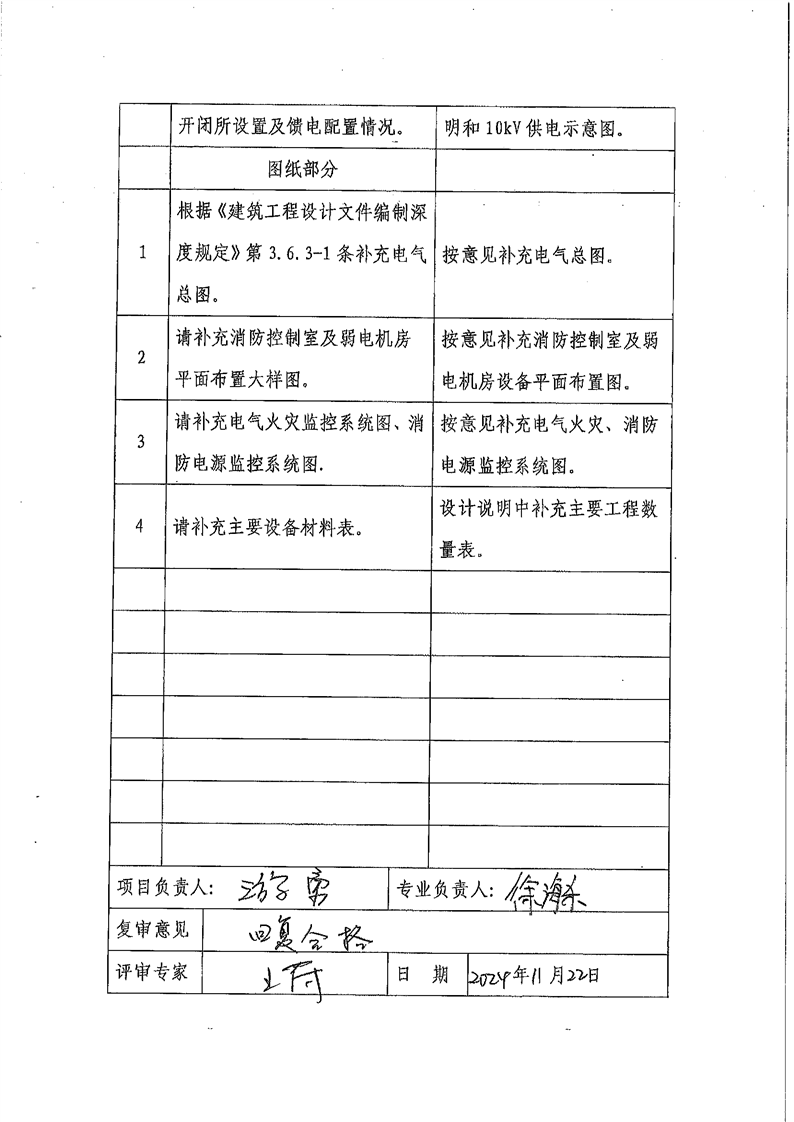 开闭所设置及馈电配置情况。
明和 10kV 供电示意图。
图纸部分
1
根据《建筑工程设计文件编制深
度规定》第 3.6.3-1 条补充电气
总图。
按意见补充电气总图。
2
请补充消防控制室及弱电机房
平面布置大样图。
按意见补充消防控制室及弱
电机房设备平面布置图。
3
请补充电气火灾监控系统图、消
防电源监控系统图.
按意见补充电气火灾、消防
电源监控系统图。
4
请补充主要设备材料表。
设计说明中补充主要工程数
量表。
项目负责人:
专业负责人:
复审意见
回复合格
评审专家
日 期
2024年11月22日